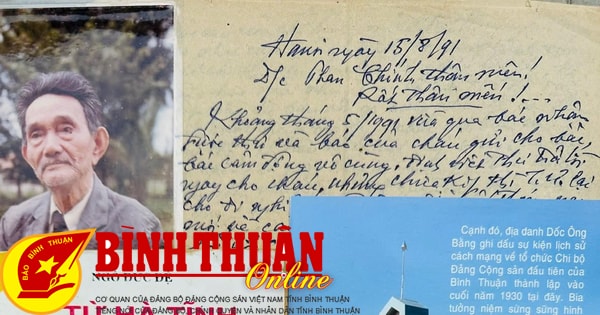 Hanoi ngày 15/8/91
Đ/c Phan Chính thân mến!
Rất thân mến!...
Khoảng tháng 5/1991 vừa qua bác nhận
được thư và báo của cháu gửi cho bác,
bác cảm động vô cùng, định viết thư trả lời
ngay cho cháu, nhưng chưa kịp thì
cho đi
BÁO BÌNH THUẬN
BÌNH THUẬN
Online
NGÔ ĐỨC
CƠ QUAN CỦA ĐẢNG BỘ ĐẢNG CỘNG SẢN VIỆT NAM TỈNH BÌNH THUẬN
TIẾNG NÓI CỦA ĐẢNG BỘ, CHÍNH QUYỀN VÀ NHÂN DÂN TỈNH BÌNH THUẬN
Cạnh đó, địa danh Dốc Ông
Bằng ghi dấu sự kiện lịch sử
cách mạng về tổ chức Chi bộ
Đảng Cộng sản đầu tiên của
Bình Thuận thành lập vào
cuối năm 1930 tại đây. Bia
tưởng niệm sừng sững hình